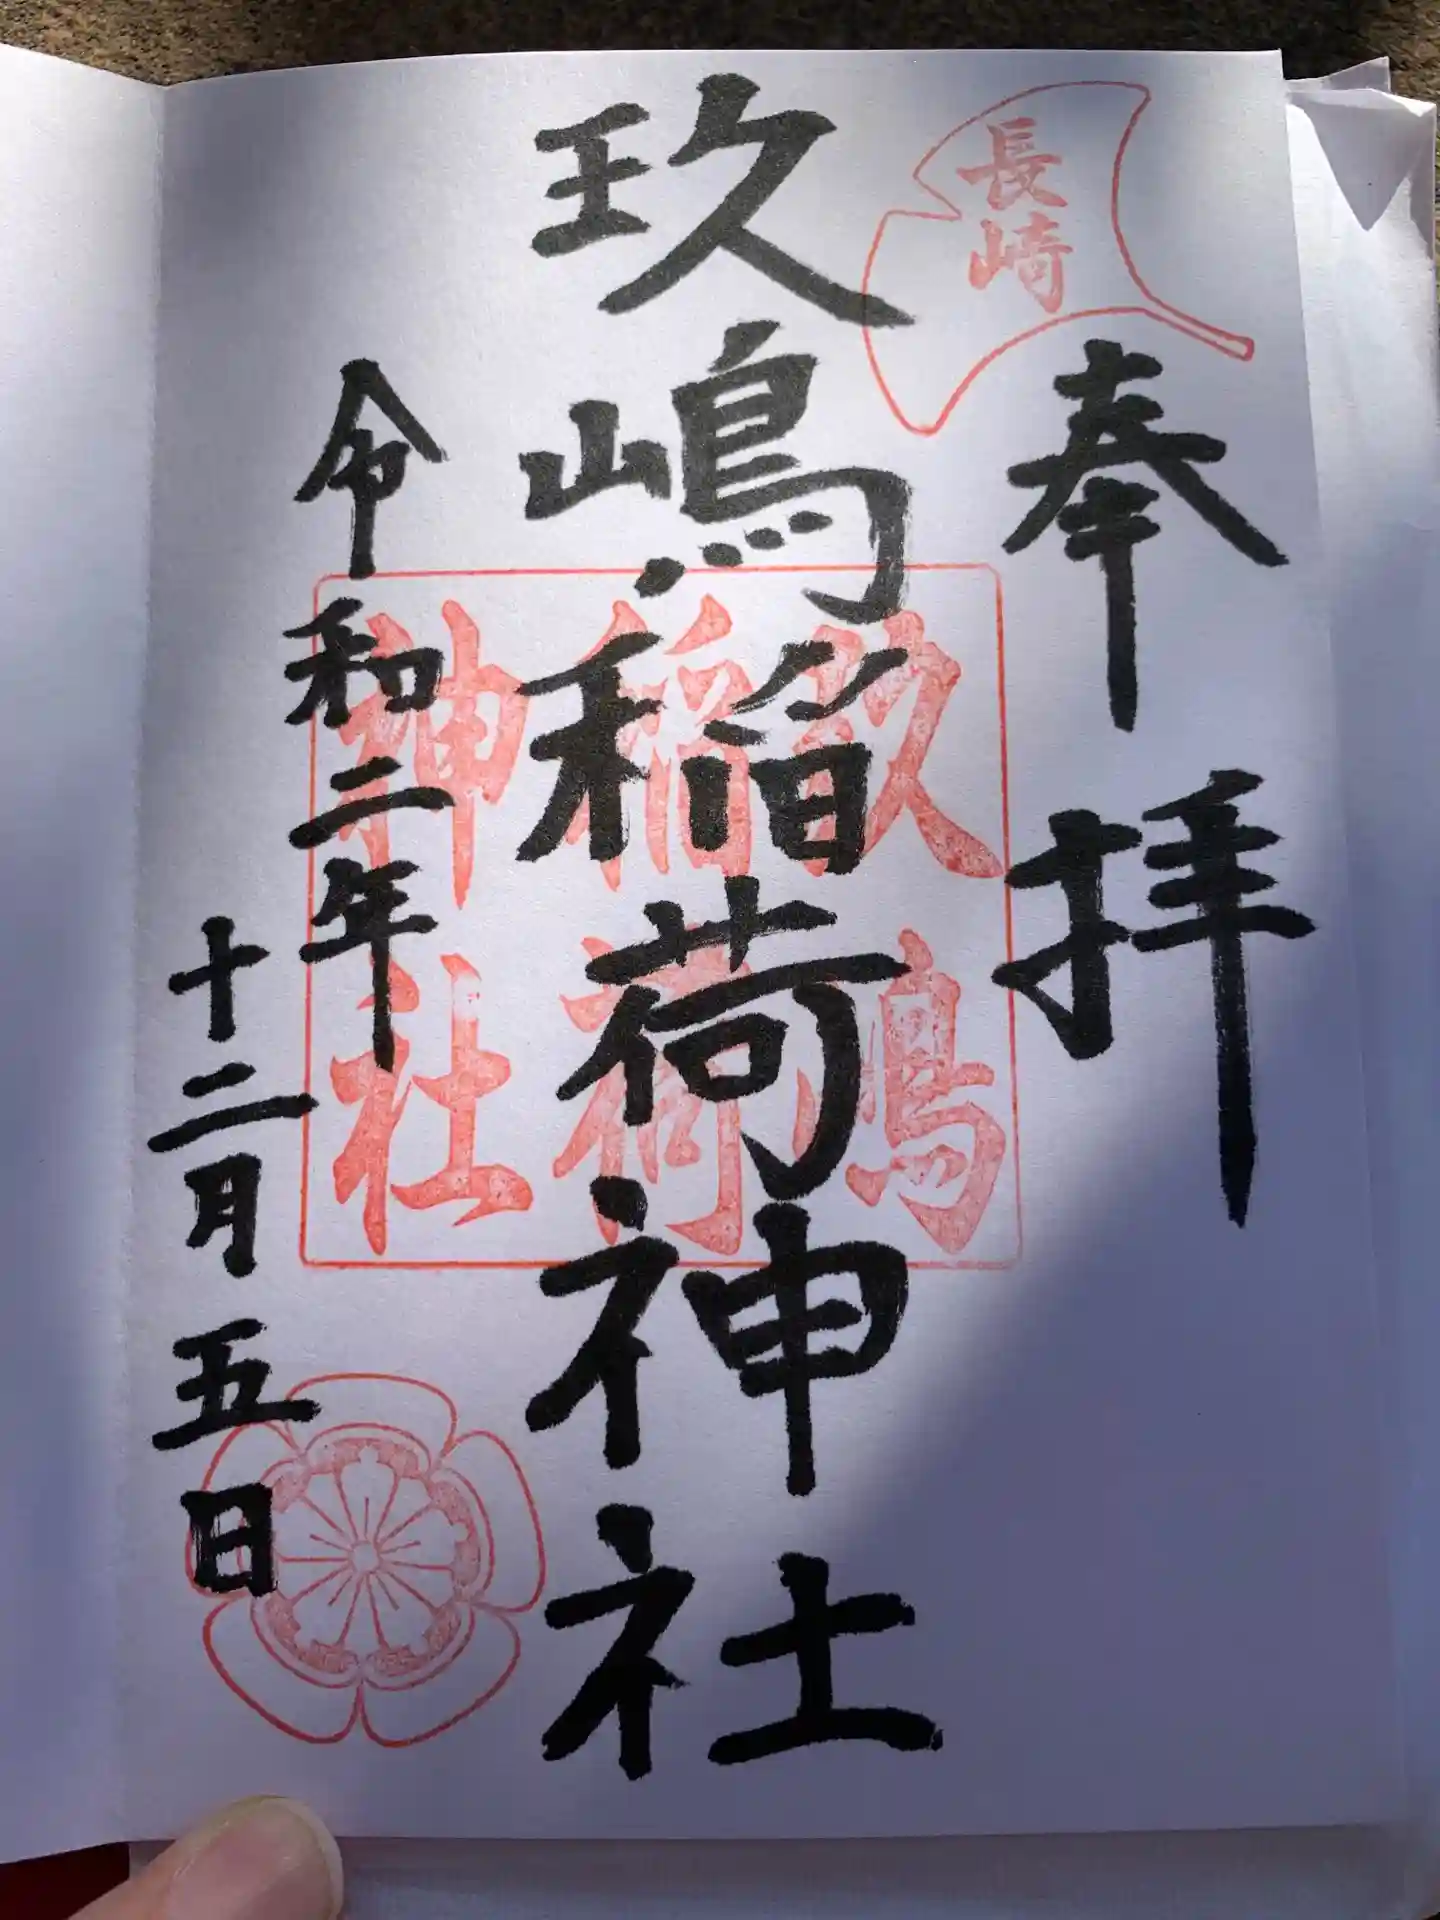 長崎
奉拝
玖嶋稲荷神社
玖嶋
稲荷
神社
令和二年
十二月五日